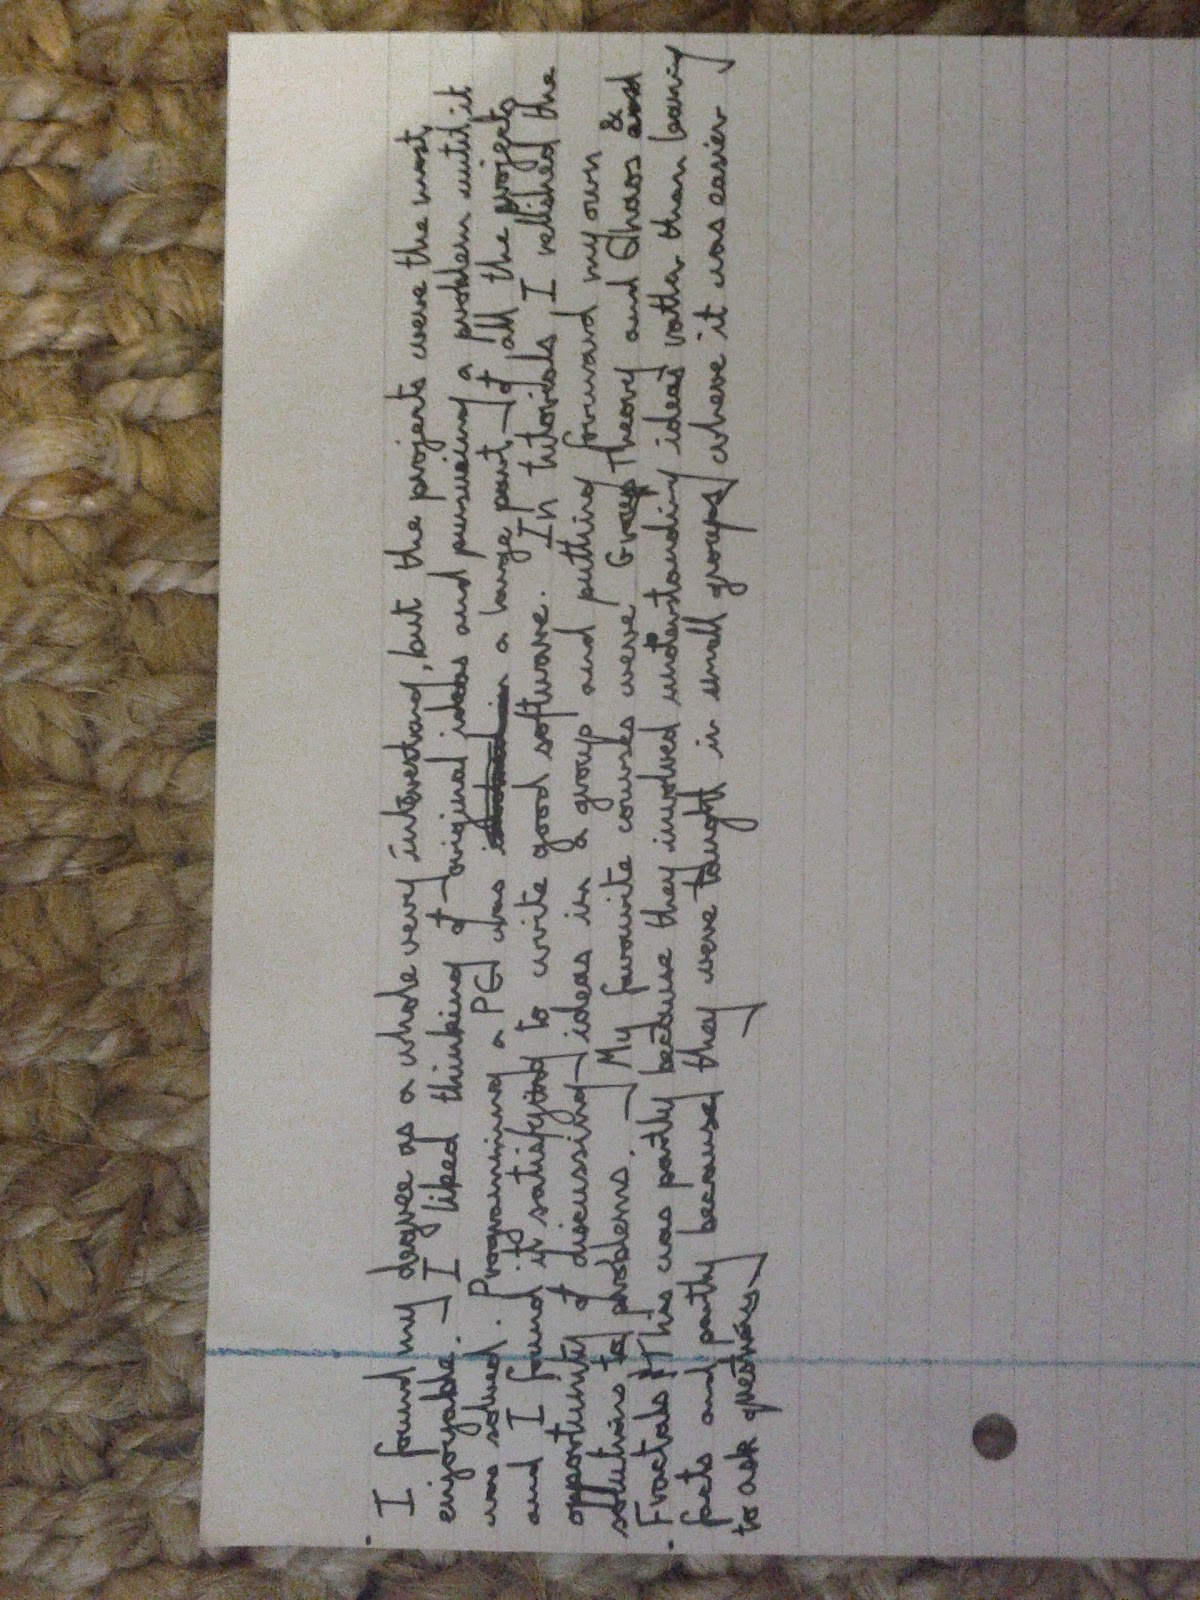 I found my degree as a whole very interesting, but the projects were the most
enjoyable. I liked thinking of original ideas and pursuing a problem until it
was solved. Programming a PC was a large part of all the projects
and I found it satisfying to write good software. In tutorials I relished the
opportunity of discussing ideas in a group and putting forward my own
solutions to problems. My favourite courses were Group Theory and Chaos &
Fractals. This was partly because they involved understanding ideas rather than learning
facts and partly because they were taught in small groups where it was easier
to ask questions.